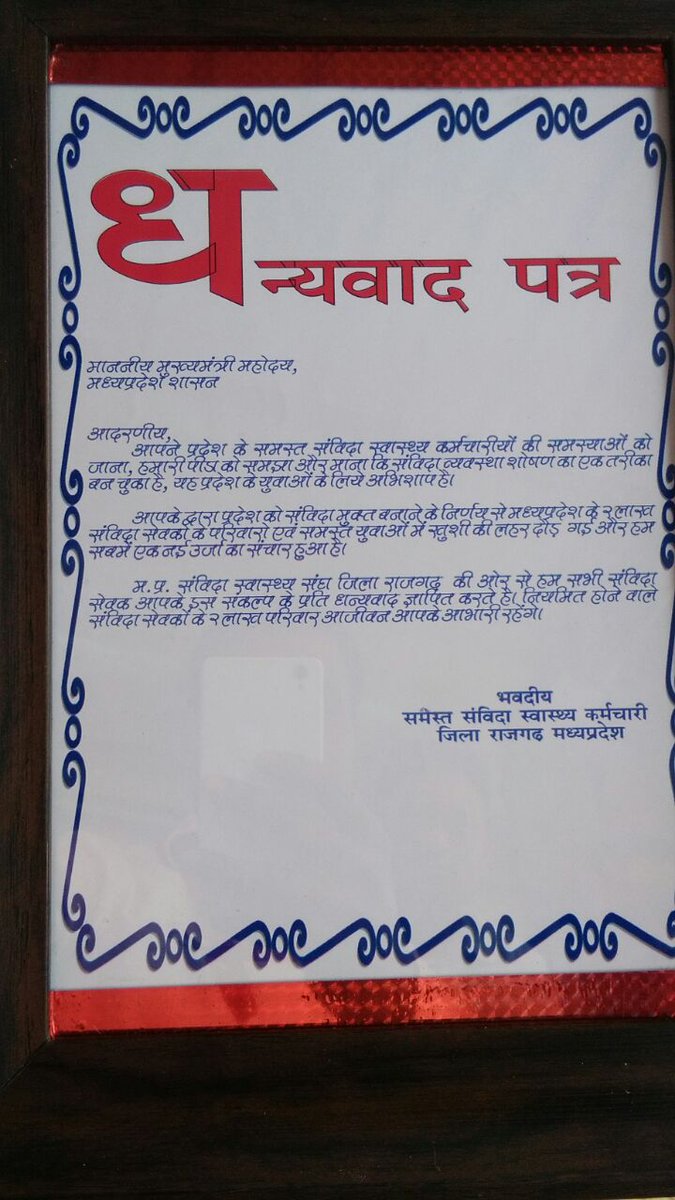 धन्यवाद पत्र
माननीय मुख्यमंत्री महोदय,
मध्यप्रदेश शासन
आदरणीय,
आपने प्रदेश के समस्त संविदा स्वास्थ्य कर्मचारीयों की समस्याओं को
जाना, हमारी पीड़ा को समझा और माना कि संविदा व्यवस्था शोषण का एक तरीका
बन चुका है, यह प्रदेश के युवाओं के लिये अभिशाप है।
आपके द्वारा प्रदेश को संविदा मुक्त बनाने के निर्णय से मध्यप्रदेश के २ लाख
संविदा सेवकों के परिवारों एवं समस्त युवाओं में खुशी की लहर दौड़ गई और हम
सबमें एक नई उर्जा का संचार हुआ है।
म.प्र. संविदा स्वास्थ्य संघ जिला राजगढ़ की ओर से हम सभी संविदा
सेवक आपके इस संकल्प के प्रति धन्यवाद ज्ञापित करते है। नियमित होने वाले
संविदा सेवकों के २ लाख परिवार आजीवन आपके आभारी रहेंगे।
भवदीय
समस्त संविदा स्वास्थ्य कर्मचारी
जिला राजगढ मध्यप्रदेश